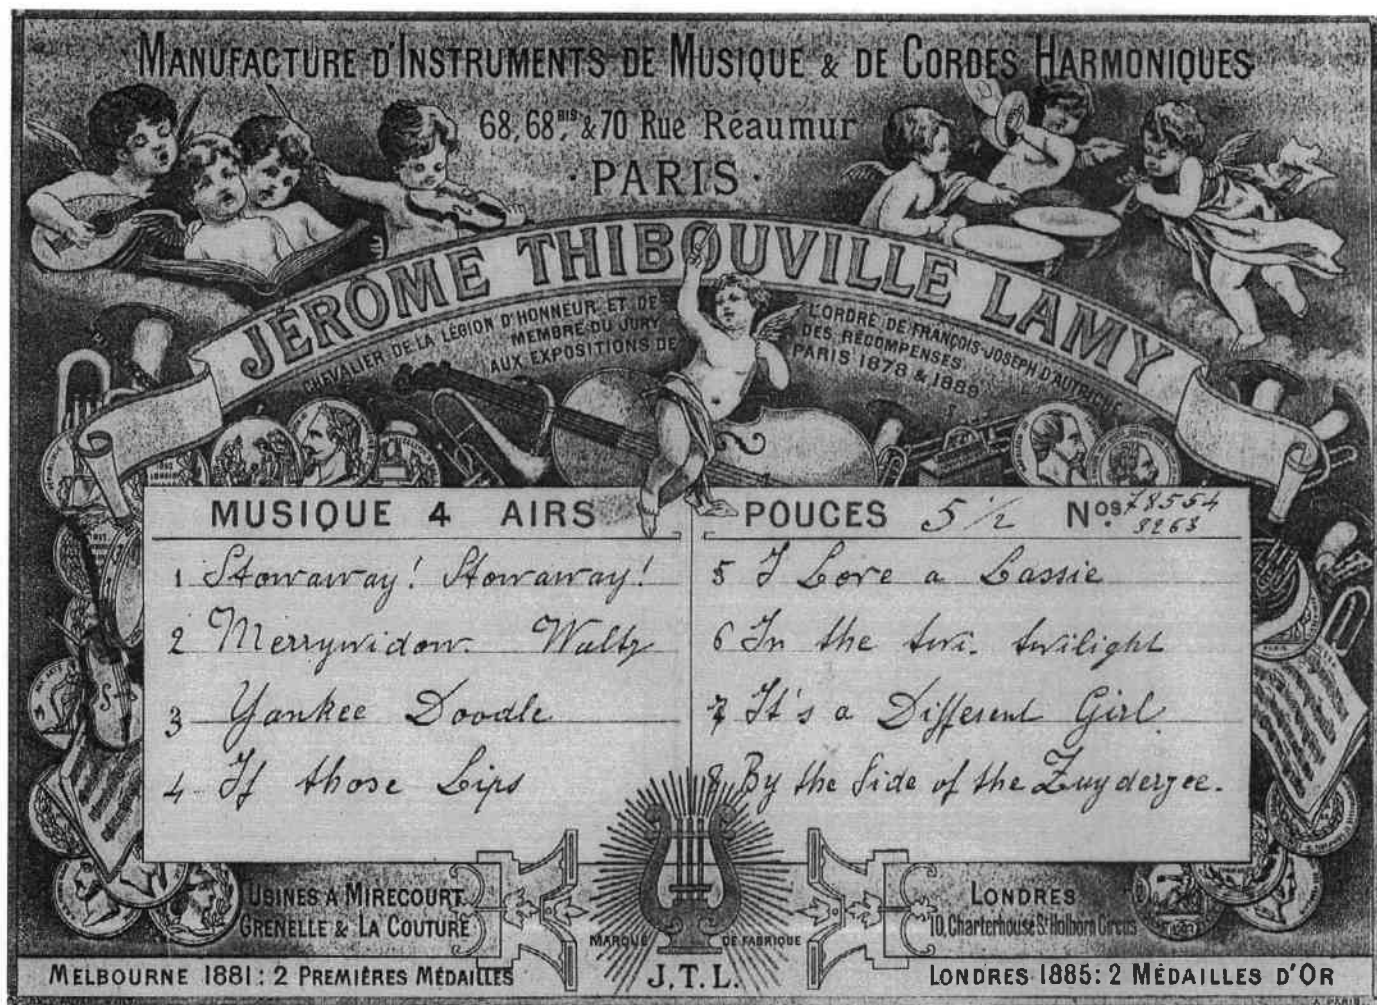 MANUFACTURE D'INSTRUMENTS DE MUSIQUE & DE CORDES HARMONIQUES
68, 68BIS, & 70 Rue Réaumur
· PARIS ·
JÉRÔME THIBOUVILLE LAMY
CHEVALIER DE LA LÉGION D'HONNEUR ET DE L'ORDRE DE FRANÇOIS-JOSEPH D'AUTRICHE
MEMBRE DU JURY DES RÉCOMPENSES
AUX EXPOSITIONS DE PARIS 1878 & 1889
MUSIQUE 4 AIRS
POUCES 5 1/2 Nos. 78554
3263
1 Stowaway! Stowaway!
2 Merrywidow Waltz
3 Yankee Doodle
4 If those Lips
5 I Love a Lassie
6 In the twi. twilight
7 It's a Different Girl
8 By the Side of the Zuyderzee.
USINES A MIRECOURT
GRENELLE & LA COUTURE
LONDRES
10, Charterhouse St. Holborn Circus
MARQUE DE FABRIQUE
J.T.L.
MELBOURNE 1881: 2 PREMIÈRES MÉDAILLES
LONDRES 1885: 2 MÉDAILLES D'OR